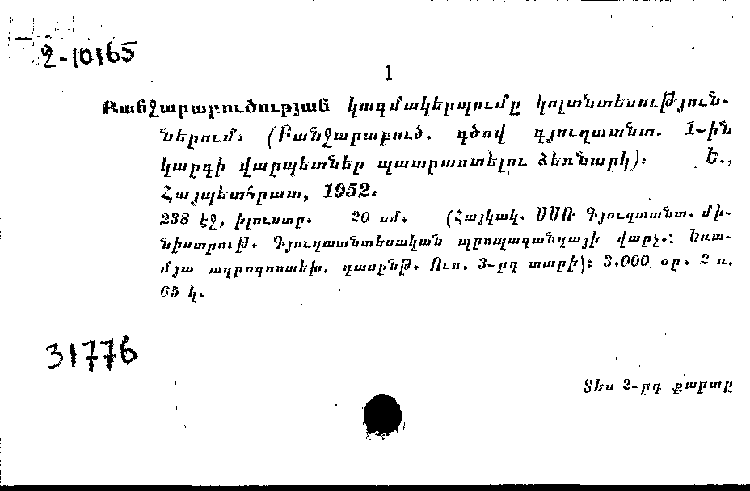 2-10165
1
Բանջարաբուծության կազմակերպումը կոլտնտեսություն-
ներում։ (Բանջարաբուծ. գծով գյուղատնտ. 1-ին
կարգի վարպետներ պատրաստելու ձեռնարկ)։ Ե.,
Հայպետհրատ, 1952.
238 էջ, իլուստր. 20 սմ. (Հայկակ. ՍՍՌ Գյուղատնտ. մի-
նիստրութ. Գյուղատնտեսական պրոպագանդայի վարչ.։ Եռա-
մյա ագրոզոոտեխ. դասընթ. Ուս. 3-րդ տարի)։ 3.000 օր. 2 ռ.
65 կ.
31776
Տես 2-րդ քարտը